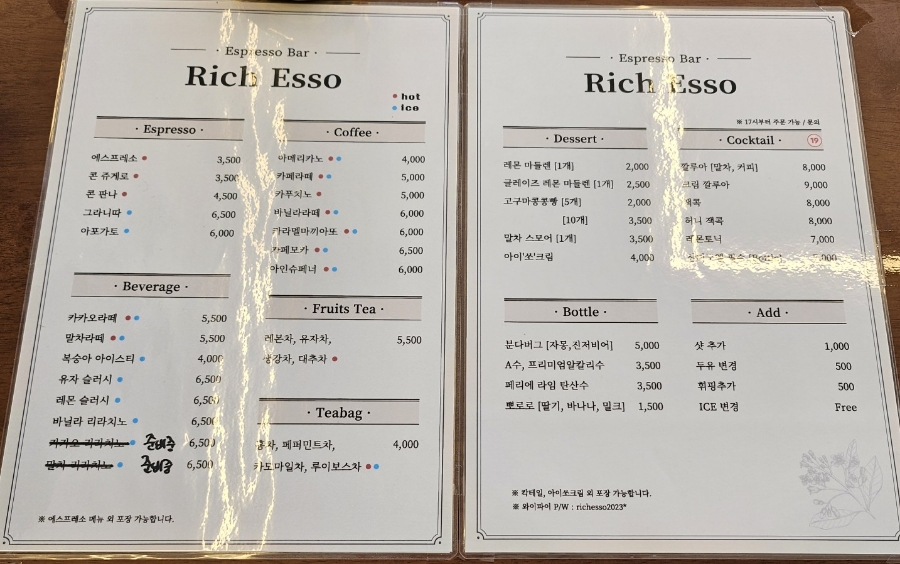 · Espresso Bar ·
Rich Esso
hot
ice
· Espresso ·
에스프레소 3,500
콘 쥬케로 3,500
콘 판나 4,500
그라니따 6,500
아포가토 6,000
· Beverage ·
카카오라떼 5,500
말차라떼 5,500
복숭아 아이스티 4,000
유자 슬러시 6,500
레몬 슬러시 6,500
바닐라 리라치노 6,500
카카오 리라치노 준비중 6,500
말차 리라치노 준비중 6,500
※ 에스프레소 메뉴 외 포장 가능합니다.
· Coffee ·
아메리카노 4,000
카페라떼 5,000
카푸치노 5,000
바닐라라떼 6,000
카라멜마끼아또 6,000
카페모카 6,500
아인슈페너 6,000
· Fruits Tea ·
레몬차, 유자차, 5,500
생강차, 대추차
· Teabag ·
홍차, 페퍼민트차, 4,000
카모마일차, 루이보스차
· Espresso Bar ·
Rich Esso
· Dessert ·
레몬 마들렌 [1개] 2,000
글레이즈 레몬 마들렌 [1개] 2,500
고구마콩콩빵 [5개] 2,000
[10개] 3,500
말차 스모어 [1개] 3,500
아이'쏘'크림 4,000
※ 17시부터 주문 가능 / 문의
· Cocktail · 19
깔루아 [말차, 커피] 8,000
크림 깔루아 9,000
잭콕 8,000
허니 잭콕 8,000
레몬토닉 7,000
· Bottle ·
분다버그 [자몽,진저비어] 5,000
A수, 프리미엄알칼리수 3,500
페리에 라임 탄산수 3,500
뽀로로 [딸기, 바나나, 밀크] 1,500
· Add ·
샷 추가 1,000
두유 변경 500
휘핑추가 500
ICE 변경 Free
※ 칵테일, 아이쏘크림 외 포장 가능합니다.
※ 와이파이 P/W : richesso2023*